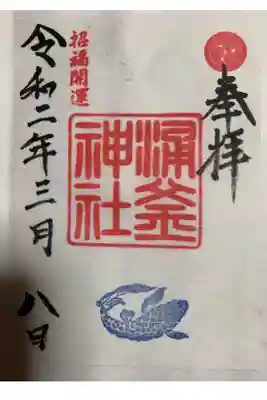 奉拝
涌釜
神社
招福開運
令和二年三月八日